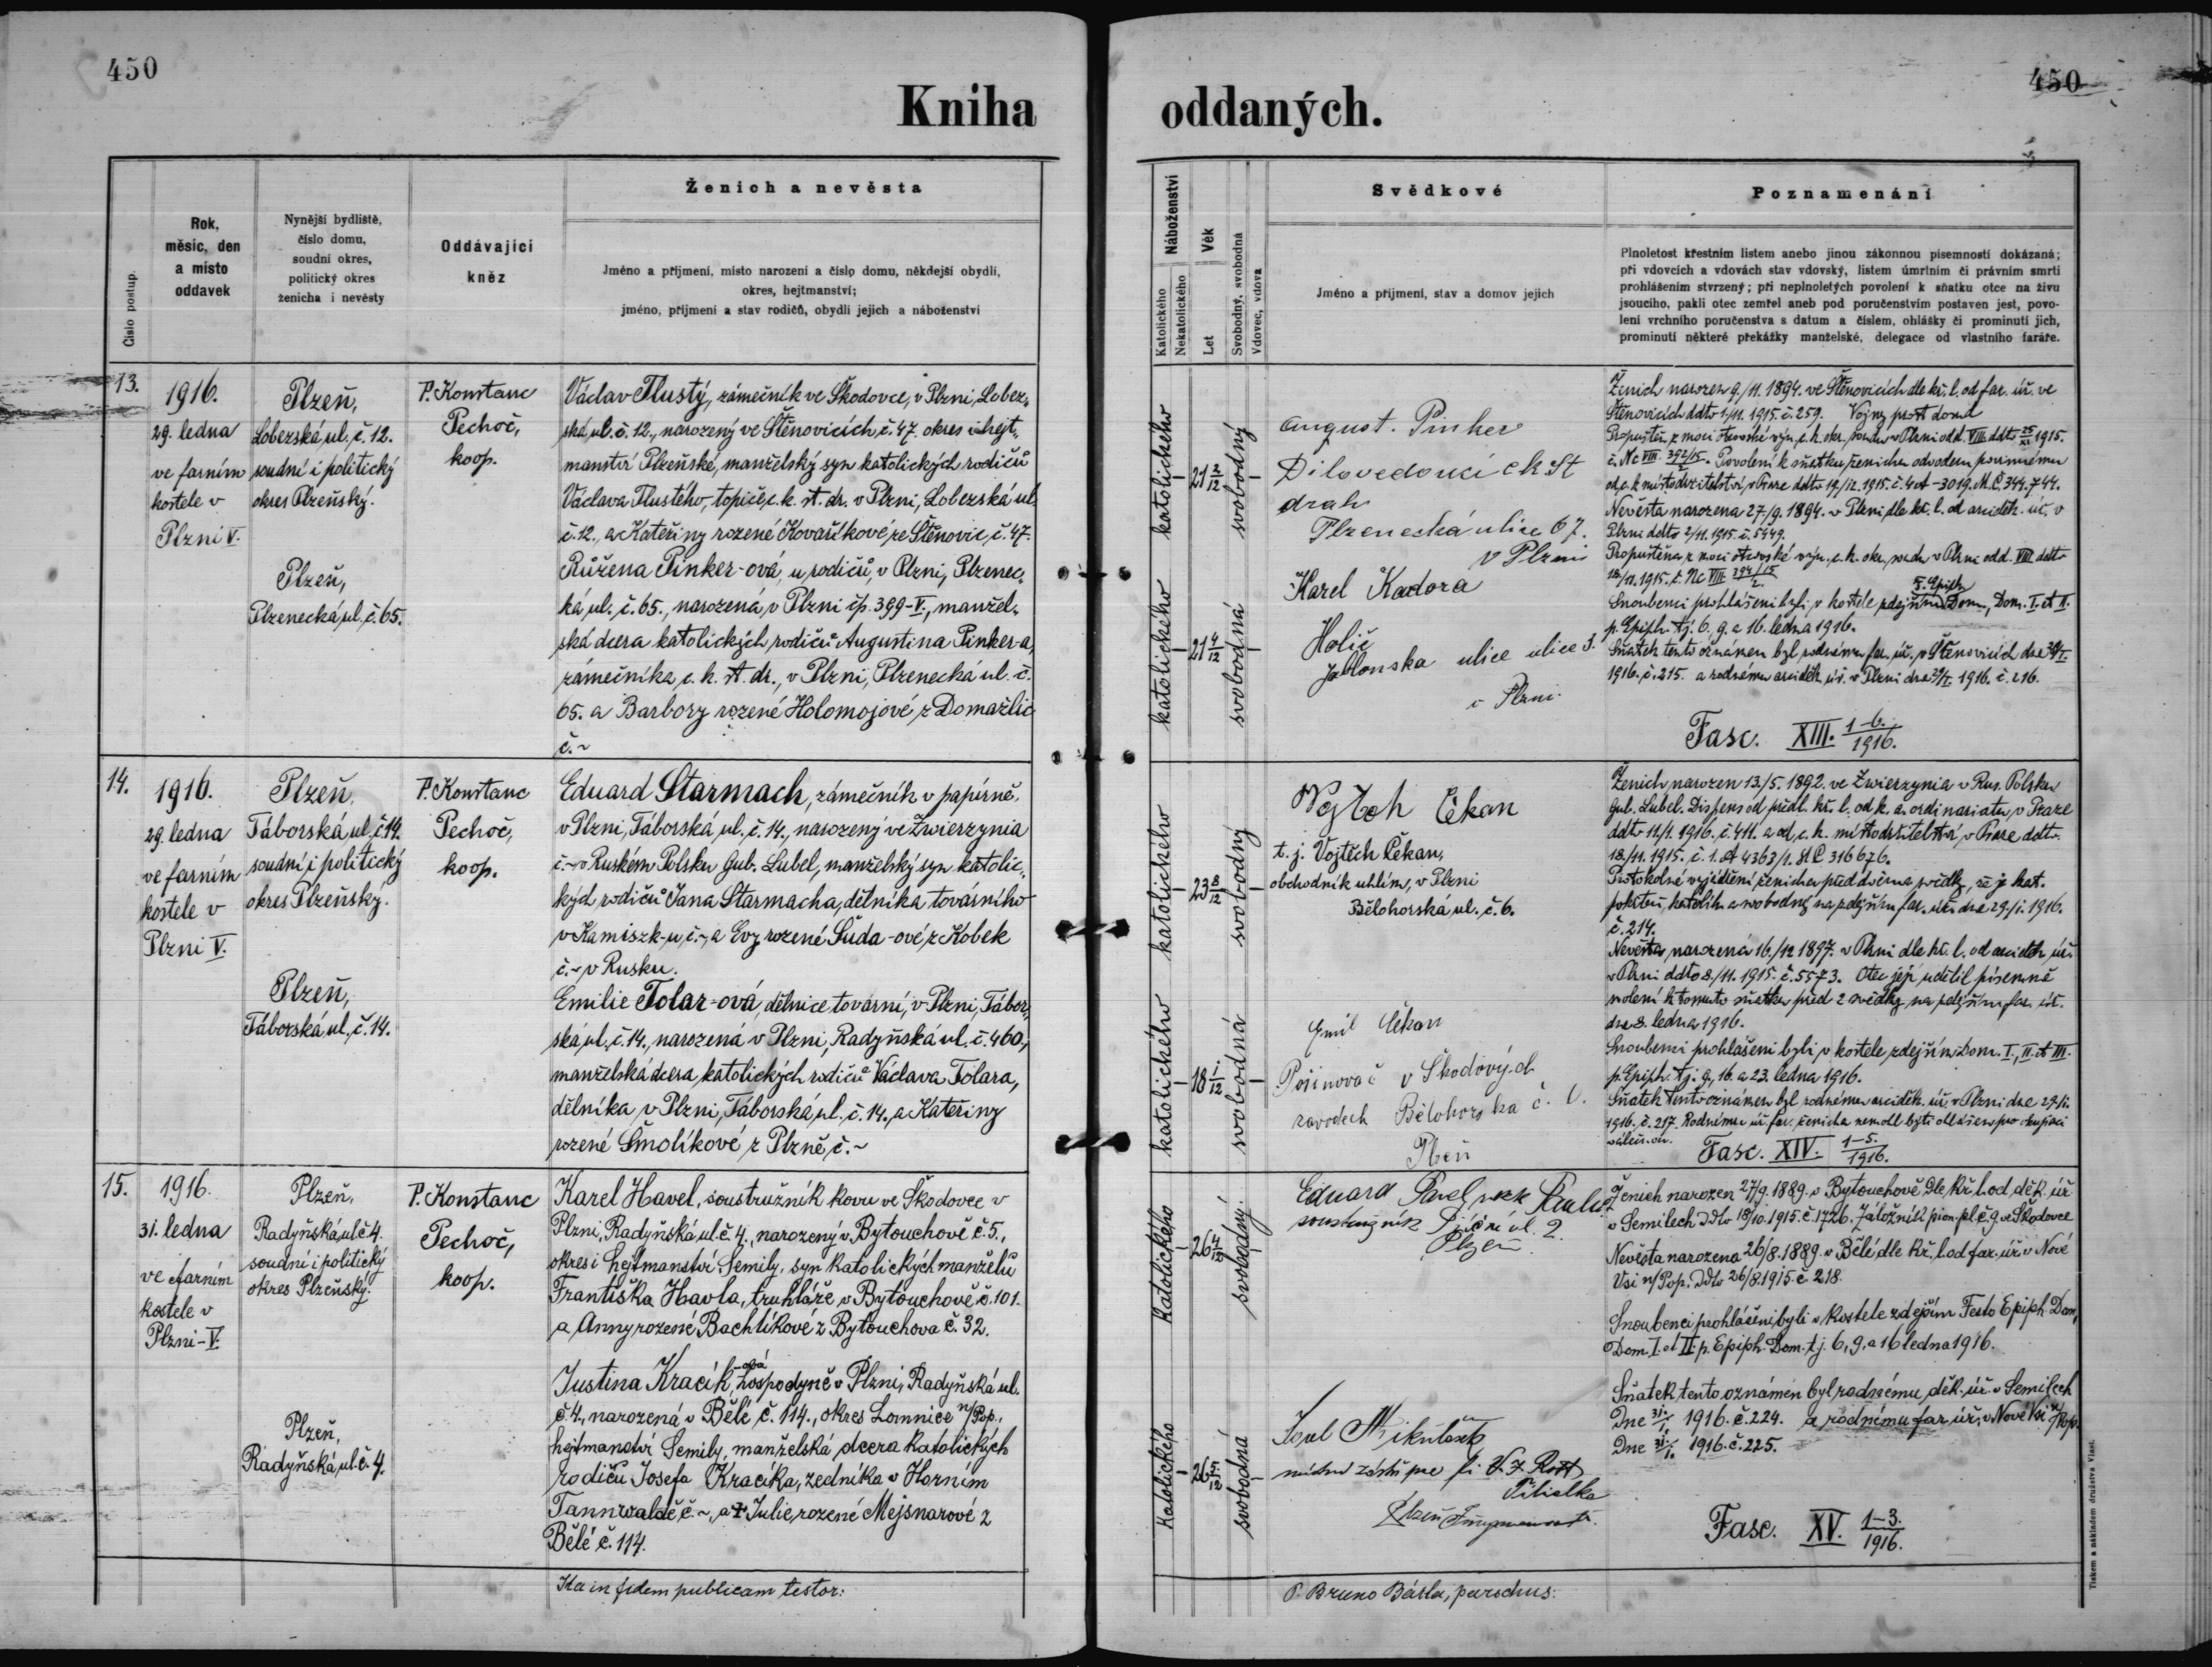 450
450
Kniha oddaných.
Číslo postup.
Rok,
měsíc, den
a místo
oddavek
Nynější bydliště,
číslo domu,
soudní okres,
politický okres
ženicha i nevěsty
Oddávající
kněz
Ženich a nevěsta
Jméno a příjmení, místo narození a číslo domu, někdejší obydlí,
okres, hejtmanství;
jméno, příjmení a stav rodičů, obydlí jejich a náboženství
Náboženství
Katolického
Nekatolického
Věk
Let
Svobodný, svobodná
Vdovec, vdova
Svědkové
Jméno a příjmení, stav a domov jejich
Poznamenání
Plnoletost křestním listem anebo jinou zákonnou písemností dokázaná;
při vdovcích a vdovách stav vdovský, listem úmrtním či právním smrti
prohlášením stvrzený; při neplnoletých povolení k sňatku otce na živu
jsoucího, pakli otec zemřel aneb pod poručenstvím postaven jest, povo-
lení vrchního poručenstva s datum a číslem, ohlášky či prominutí jich,
prominutí některé překážky manželské, delegace od vlastního faráře.
13.
1916.
29. ledna
ve farním
kostele v
Plzni V.
Plzeň,
Lobezská ul. č. 12.
soudní i politický
okres Plzeňský.
Plzeň,
Plzenecká ul. č. 65.
P. Konstanc
Pechoč,
koop.
Václav Tlustý, zámečník ve Škodovce, v Plzni, Lobez-
ská ul. č. 12., narozený ve Štěnovicích č. 47. okres i hejt-
manství Plzeňské, manželský syn katolických rodičů
Václava Tlustého, topiče c. k. st. dr. v Plzni, Lobezská ul.
č. 12., a Kateřiny rozené Kovaříkové ze Štěnovic, č. 47.
Růžena Pinker-ová, u rodičů, v Plzni, Plzenec-
ká ul. č. 65., narozená v Plzni čp. 399-V., manžel-
ská dcera katolických rodičů Augustina Pinker-a,
zámečníka c. k. st. dr., v Plzni, Plzenecká ul. č.
65. a Barbory rozené Holomojové z Domažlic
č. ~
katolického
21 2/12
svobodný
katolického
21 4/12
svobodná
August. Pinker
Dílovedoucí c k St
drah
Plzenecká ulice 67.
v Plzni
Karel Kadora
Holič
Jablonska ulice ulice 3.
v Plzni.
Ženich narozen 9./11. 1894. ve Štěnovicích dle kř. l. od far. úř. ve
Štěnovicích ddto 1/11. 1915. č. 259. Vojny prost doma
Propuštěn z moci otcovské výn. c. k. okr. soudu v Plzni odd. VIII. ddto 25/XI 1915.
č. Nc VIII 392/15/2. Povolení k sňatku ženicha odvodem povinnému
od c. k. místodržitelství v Praze ddto 17/12. 1915. č. 4 A-3019. M. Č. 344.744.
Nevěsta narozena 27/9. 1894. v Plzni dle kř. l. od arciděk. úř. v
Plzni ddto 2/11. 1915. č. 5449.
Propuštěna z moci otcovské výn. c. k. okr. soudu v Plzni odd. VIII ddto
18/11. 1915. č. Nc VIII 394/15/2.
Snoubenci prohlášeni byli v kostele zdejším F. Epiph. Dom., Dom. I. et II.
p. Epiph. t. j. 6. 9. a 16. ledna 1916.
Sňatek tento oznámen byl rodnému far. úř. v Štěnovicích dne 29/I.
1916. č. 215. a rodnému arciděk. úř. v Plzni dne 29/I. 1916. č. 216.
Fasc. XIII. 1-6./1916.
14.
1916.
29. ledna
ve farním
kostele v
Plzni V.
Plzeň,
Táborská ul. č. 14.
soudní i politický
okres Plzeňský.
Plzeň,
Táborská ul. č. 14.
P. Konstanc
Pechoč,
koop.
Eduard Starmach, zámečník v papírně,
v Plzni, Táborská ul. č. 14., narozený ve Zwierzynia
č. ~ v Ruském Polsku Gub. Lubel, manželský syn katolic-
kých rodičů Jana Starmacha, dělníka továrního
v Kamiszk-u, č. ~, a Evy rozené Šuda-ové z Kobek
č. ~ v Rusku.
Emilie Tolar-ová, dělnice tovární, v Plzni, Tábor-
ská ul. č. 14., narozená v Plzni, Radyňská ul. č. 460.,
manželská dcera katolických rodičů Václava Tolara,
dělníka v Plzni, Táborská ul. č. 14., a Kateřiny
rozené Šmolíkové z Plzně, č. ~
katolického
23 8/12
svobodný
katolického
18 1/12
svobodná
Vojtěch Čekan
t. j. Vojtěch Čekan,
obchodník uhlím, v Plzni
Bělohorská ul. č. 6.
Emil Čekan
v Škodových
zavodech Bělohorska č.
Plzeň
Ženich narozen 13/5. 1892. ve Zwierzynia v Rus. Polsku
Gub. Lubel. Dispens od předl. kř. l. od k. a. ordinariatu v Praze
ddto 11/1. 1916. č. 411. a od c. k. místodržitelství v Praze ddto
18./11. 1915. č. 1. A 4363/1. M Č 316676.
Protokolné vyjádření ženicha před dvěma svědky, že je kat.
pokřtěn, katolík a svobodný na zdejším far. úřadě dne 29./1. 1916.
č. 214.
Nevěsta narozena 16./12 1897. v Plzni dle kř. l. od arciděk. úř.
v Plzni ddto 8./11. 1915. č. 5573. Otec její udělil písemně
svolení k tomuto sňatku před 2 svědky na zdejším far. úř.
dne 8. ledna 1916.
Snoubenci prohlášeni byli v kostele zdejším Dom. I., II. et III.
p. Epiph. t. j. 9., 16. a 23. ledna 1916.
Sňatek tento oznámen byl rodnému arciděk. úř. v Plzni dne 29/1.
1916. č. 217. Rodnému úř. far. ženicha nemohl býti ohlášen pro okupaci
Fasc. XIV. 1-5./1916.
15.
1916.
31. ledna
ve farním
kostele v
Plzni-V.
Plzeň,
Radyňská ul. č. 4.
soudní i politický
okres Plzeňský.
Plzeň,
Radyňská ul. č. 4.
P. Konstanc
Pechoč,
koop.
Karel Havel, soustružník kovu ve Škodovce v
Plzni, Radyňská ul. č. 4., narozený v Bytouchově č. 5.,
okres i hejtmanství Semily, syn katolických manželů
Františka Havla, truhláře v Bytouchově č. 101.
a Anny rozené Bachtíkové z Bytouchova č. 32.
Justina Kracík-ová, hospodyně v Plzni, Radyňská ul.
č. 4., narozená v Bělé č. 114., okres Lomnice n/Pop.,
hejtmanství Semily, manželská dcera katolických
rodičů Josefa Kracíka, zedníka v Horním
Tannwaldě č. ~, a † Julie, rozené Mejsnarové z
Bělé č. 114.
Katolického
26 4/12
svobodný.
Katolického
26 5/12
svobodná
Eduard
soustružník Příční ul. 2.
Plzeň.
Mikuláš
fi V. J. Rott
Filialka
Plzeň
Ženich narozen 27/9. 1889. v Bytouchově dle kř. l. od děk. úř.
v Semilech ddto 18/10. 1915. č. 1726. Záložník pion. pl. č. 9. ve Škodovce
Nevěsta narozena 26/8. 1889. v Bělé dle kř. l. od far. úř. v Nové
Vsi n/Pop. ddto 26/8. 1915. č. 218.
Snoubenci prohlášeni byli v kostele zdejším Festo Epiph. Dom,
Dom. I. et II. p. Epiph. Dom. t. j. 6., 9., a 16 ledna 1916.
Sňatek tento oznámen byl rodnému děk. úř. v Semilech
Dne 31./1. 1916. č. 224. a rodnému far. úř. v Nové Vsi n/Pop.
Dne 31./1. 1916. č. 225.
Fasc. XV. 1-3./1916.
Ita in fidem publicam testor:
P. Bruno Bárta, parochus.
Tiskem a nákladem družstva Vlast.